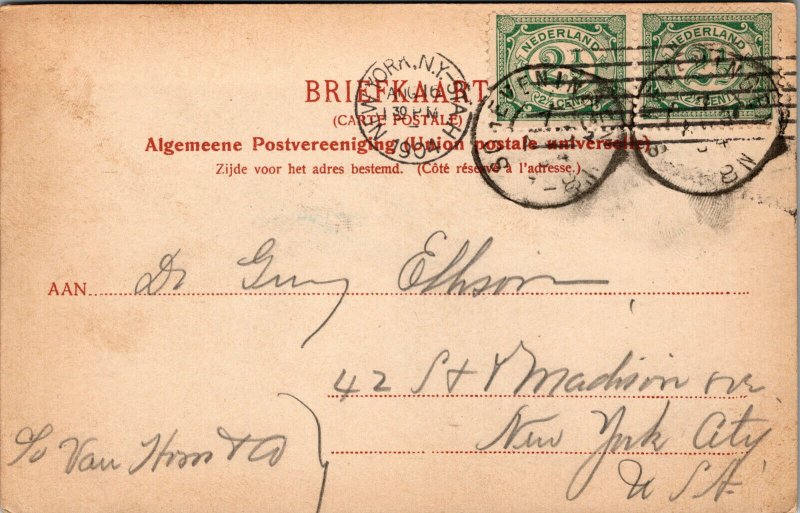 NEDERLAND NEDERLAND
2½ 2½
(2½ CENT)
NEW YORK, N.Y.
AUG 16
1 30 P.M.
1904
BRIEFKAART
(CARTE POSTALE)
Algemeene Postvereeniging (Union postale universelle)
Zijde voor het adres bestemd. (Côté réservé à l'adresse.)
AAN Dr Guy Ellison
42 St & Madison ave
New York City
U S A
Van Horn & Co